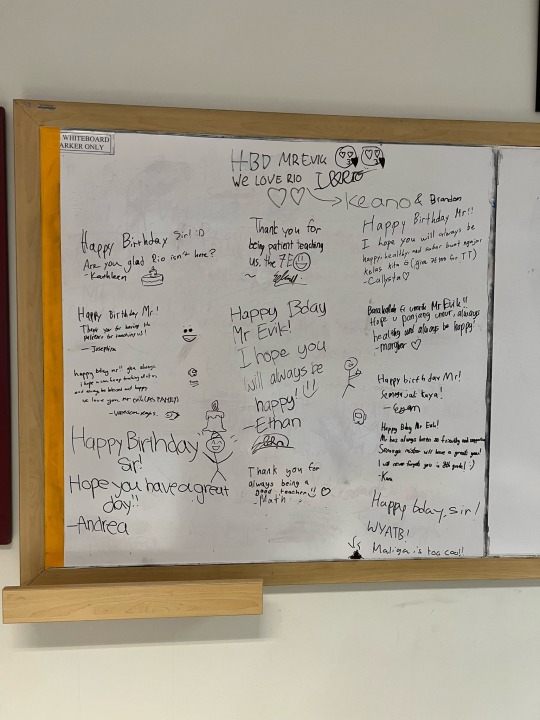 WHITEBOARD
MARKER ONLY
HBD MR EVIK
WE LOVE RIO
Keano & Brandon
Happy Birthday Sir! :D
Are you glad Rio isn't here?
- Kathleen
Thank you for
being patient teaching
us, the 7E
Happy Birthday Mr!!
I hope you will always be
happy, healthy, and sabar buat ngajar
kelas kita
- Callysta ♡
Happy Birthday Mr!
Thank you for having the
patience for teaching us!
- Josephine
Happy Bday
Mr Evik!
I hope you
will always be
happy! !!
- Ethan
Mr Evik!!
Hope u panjang umur, always
healthy and always be happy!
happy bday mr!!
and always be blessed and happy
we love you mr evik
Happy birthday Mr!
Semoga jak kaya!
Happy Bday Mr Evik!
Mr has always been so friendly and
Semoga mister will have a great year!
I will never forget you in 8th grade! :)
Happy Birthday
Sir!
Hope you have a great
day!!
- Andrea
Thank you for
always being a
good teacher!! ♡
- Math
Happy bday, sir!
WYATB!
Maliqa is too cool!!